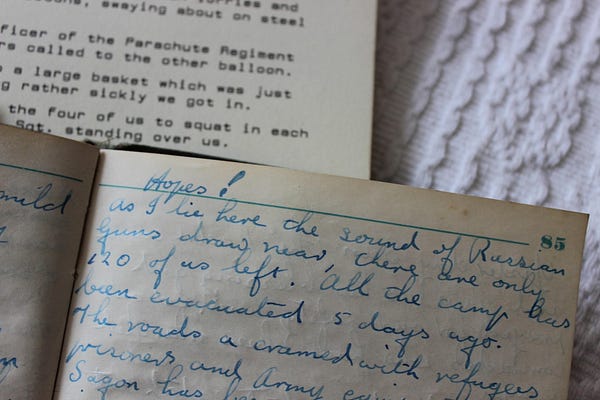 and
swaying about on steel
of the Parachute Regiment
called to the other balloon.
a large basket which was just
rather sickly we got in.
the four of us to squat in each
Sgt. standing over us.
mild
85
Hopes!
as I lie here the sound of Russian
Guns draw near, there are only
120 of us left. All the camp has
been evacuated 5 days ago.
The roads a cramed with refugees
prisiners and Army
Sagon has